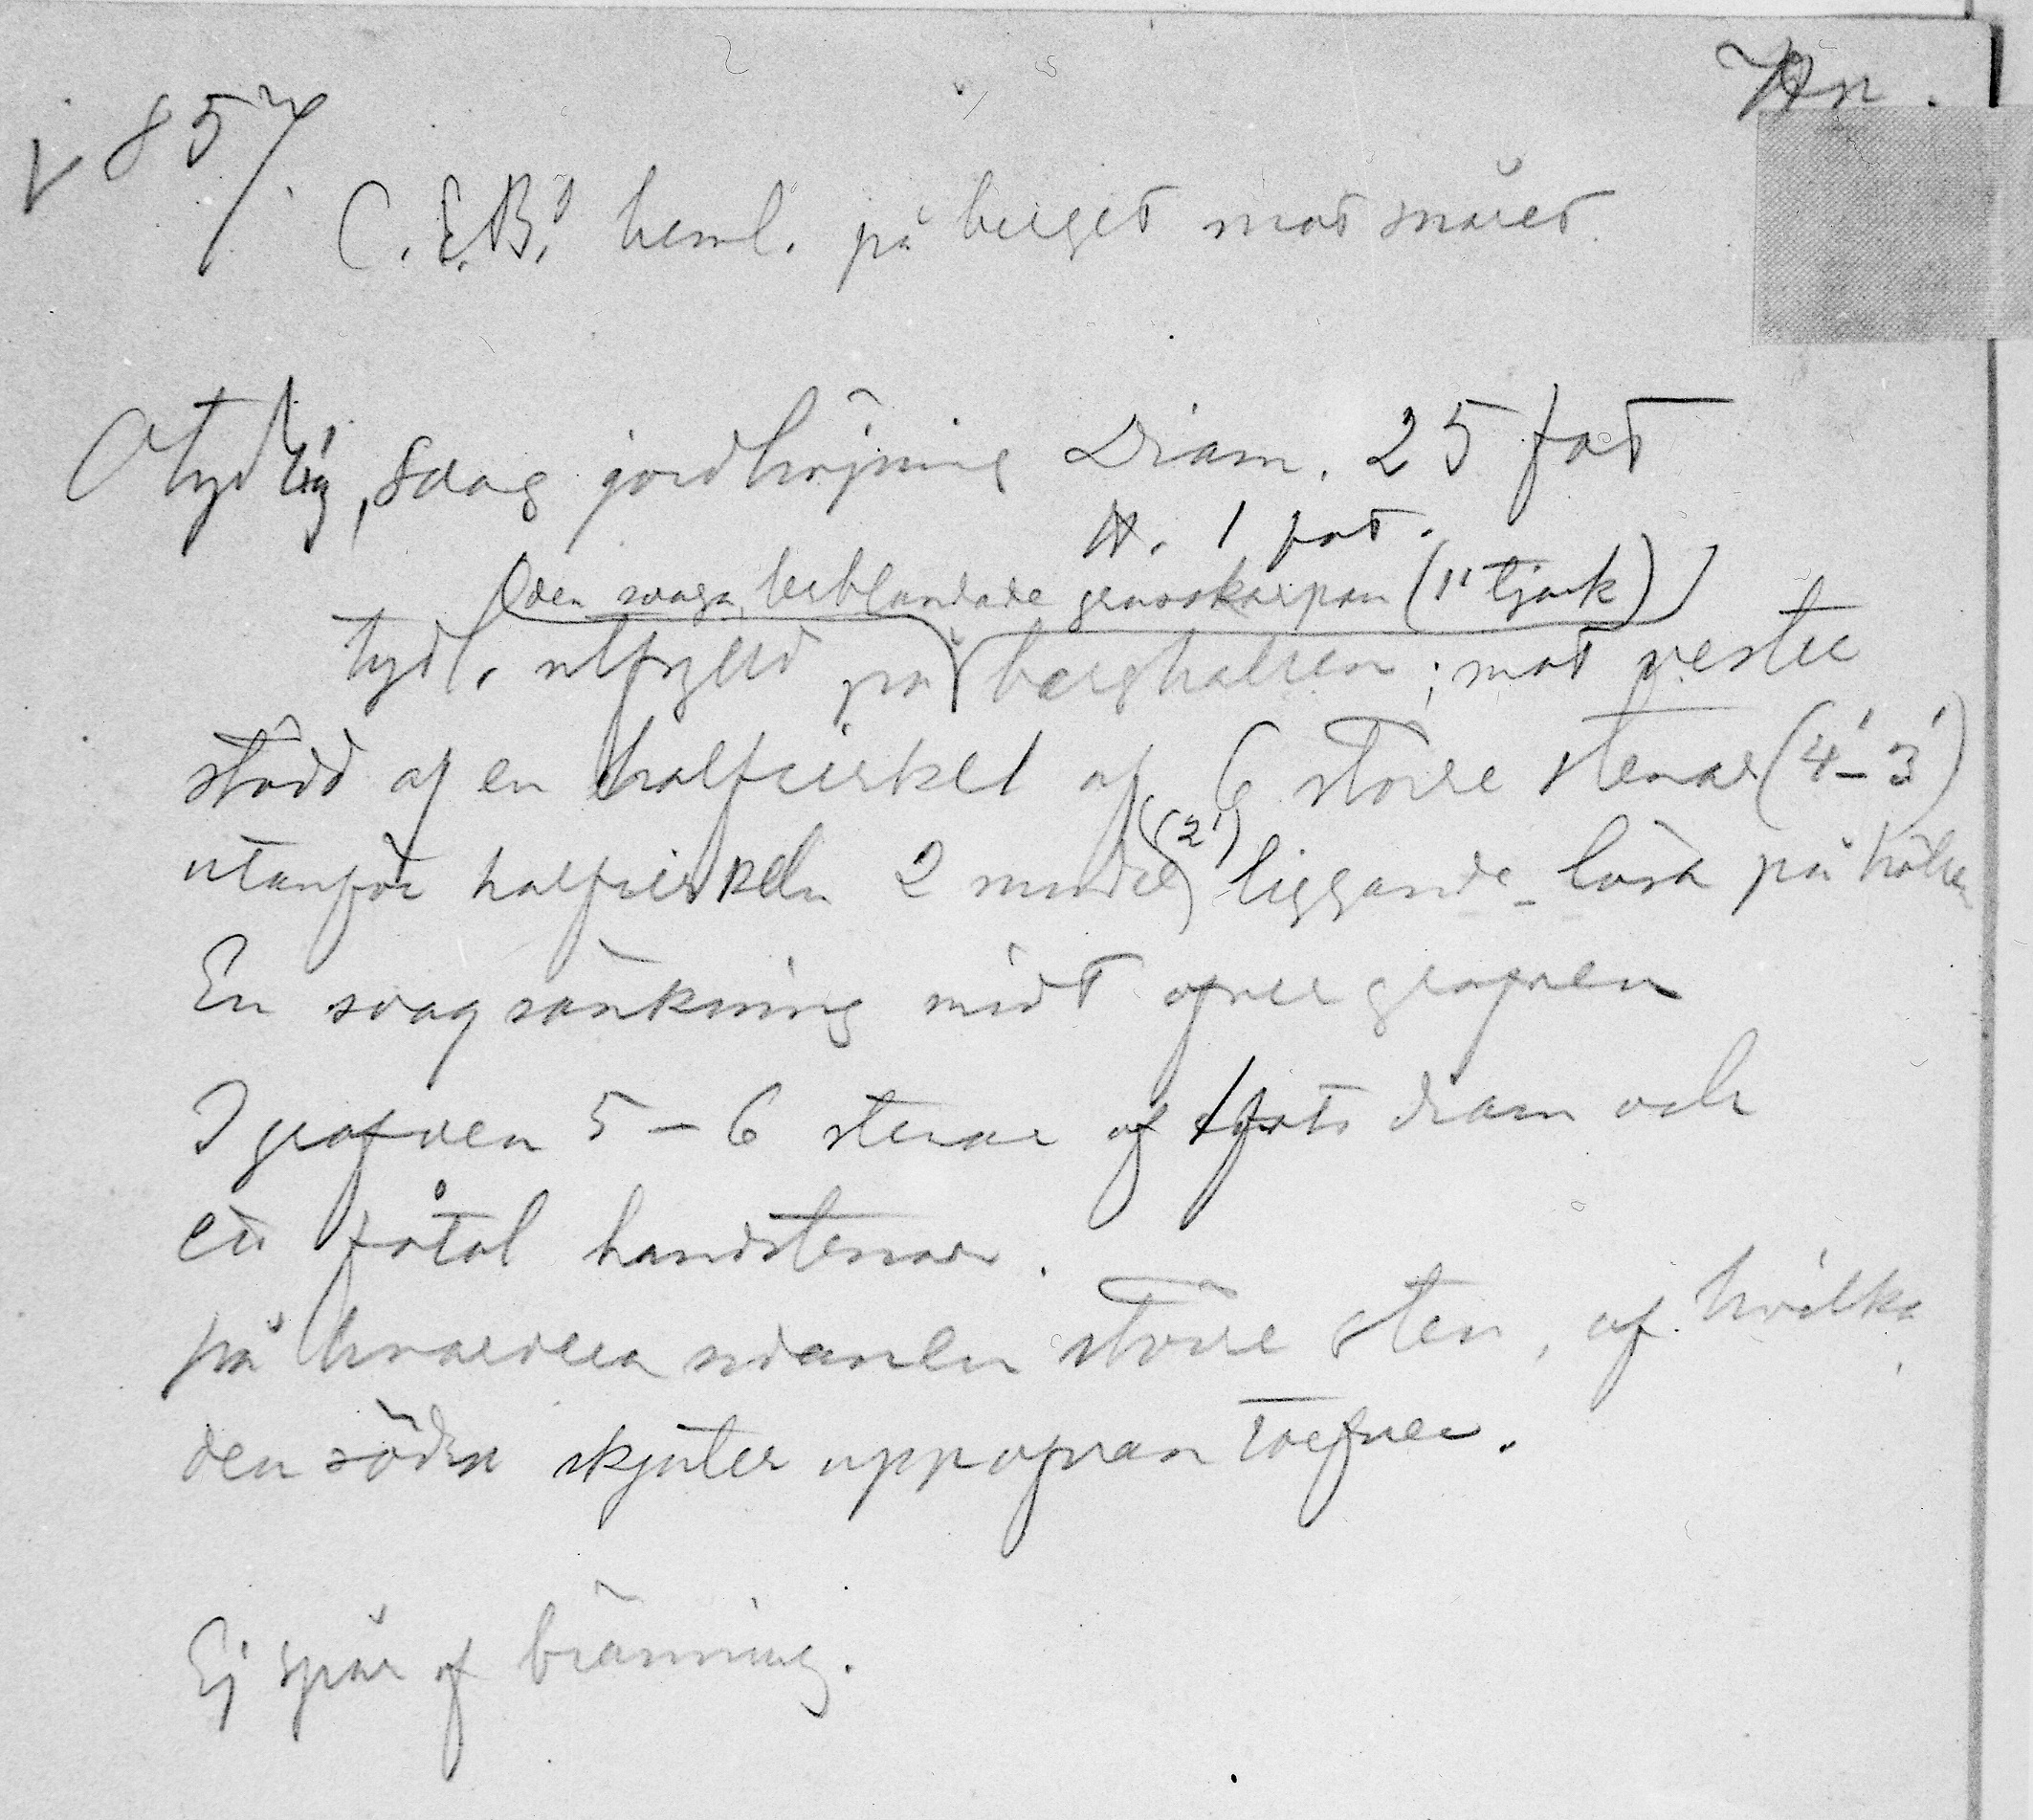 857.
C.E.B:s heml. på berget mot snåret.
Otydlig, svag jordhöjning Diam. 25 fot
H. 1 fot.
(den svaga, lerblandade grusskorpan (1' tjock))
tydl. utfylld på berghällen; mot vester
stödd af en halfcirkel af 6 större stenar (4'-3')
utanför halfcirkeln 2 mindre (2') liggande lösa på hällen
En svag sänkning midt öfver grafven
I grafven 5-6 stenar af 1 fots diam och
ett fåtal handstenar.
på hvardera sidan en större sten, af hvilka
den södra skjuter upp ofvan torfven.
Ej spår af bränning.